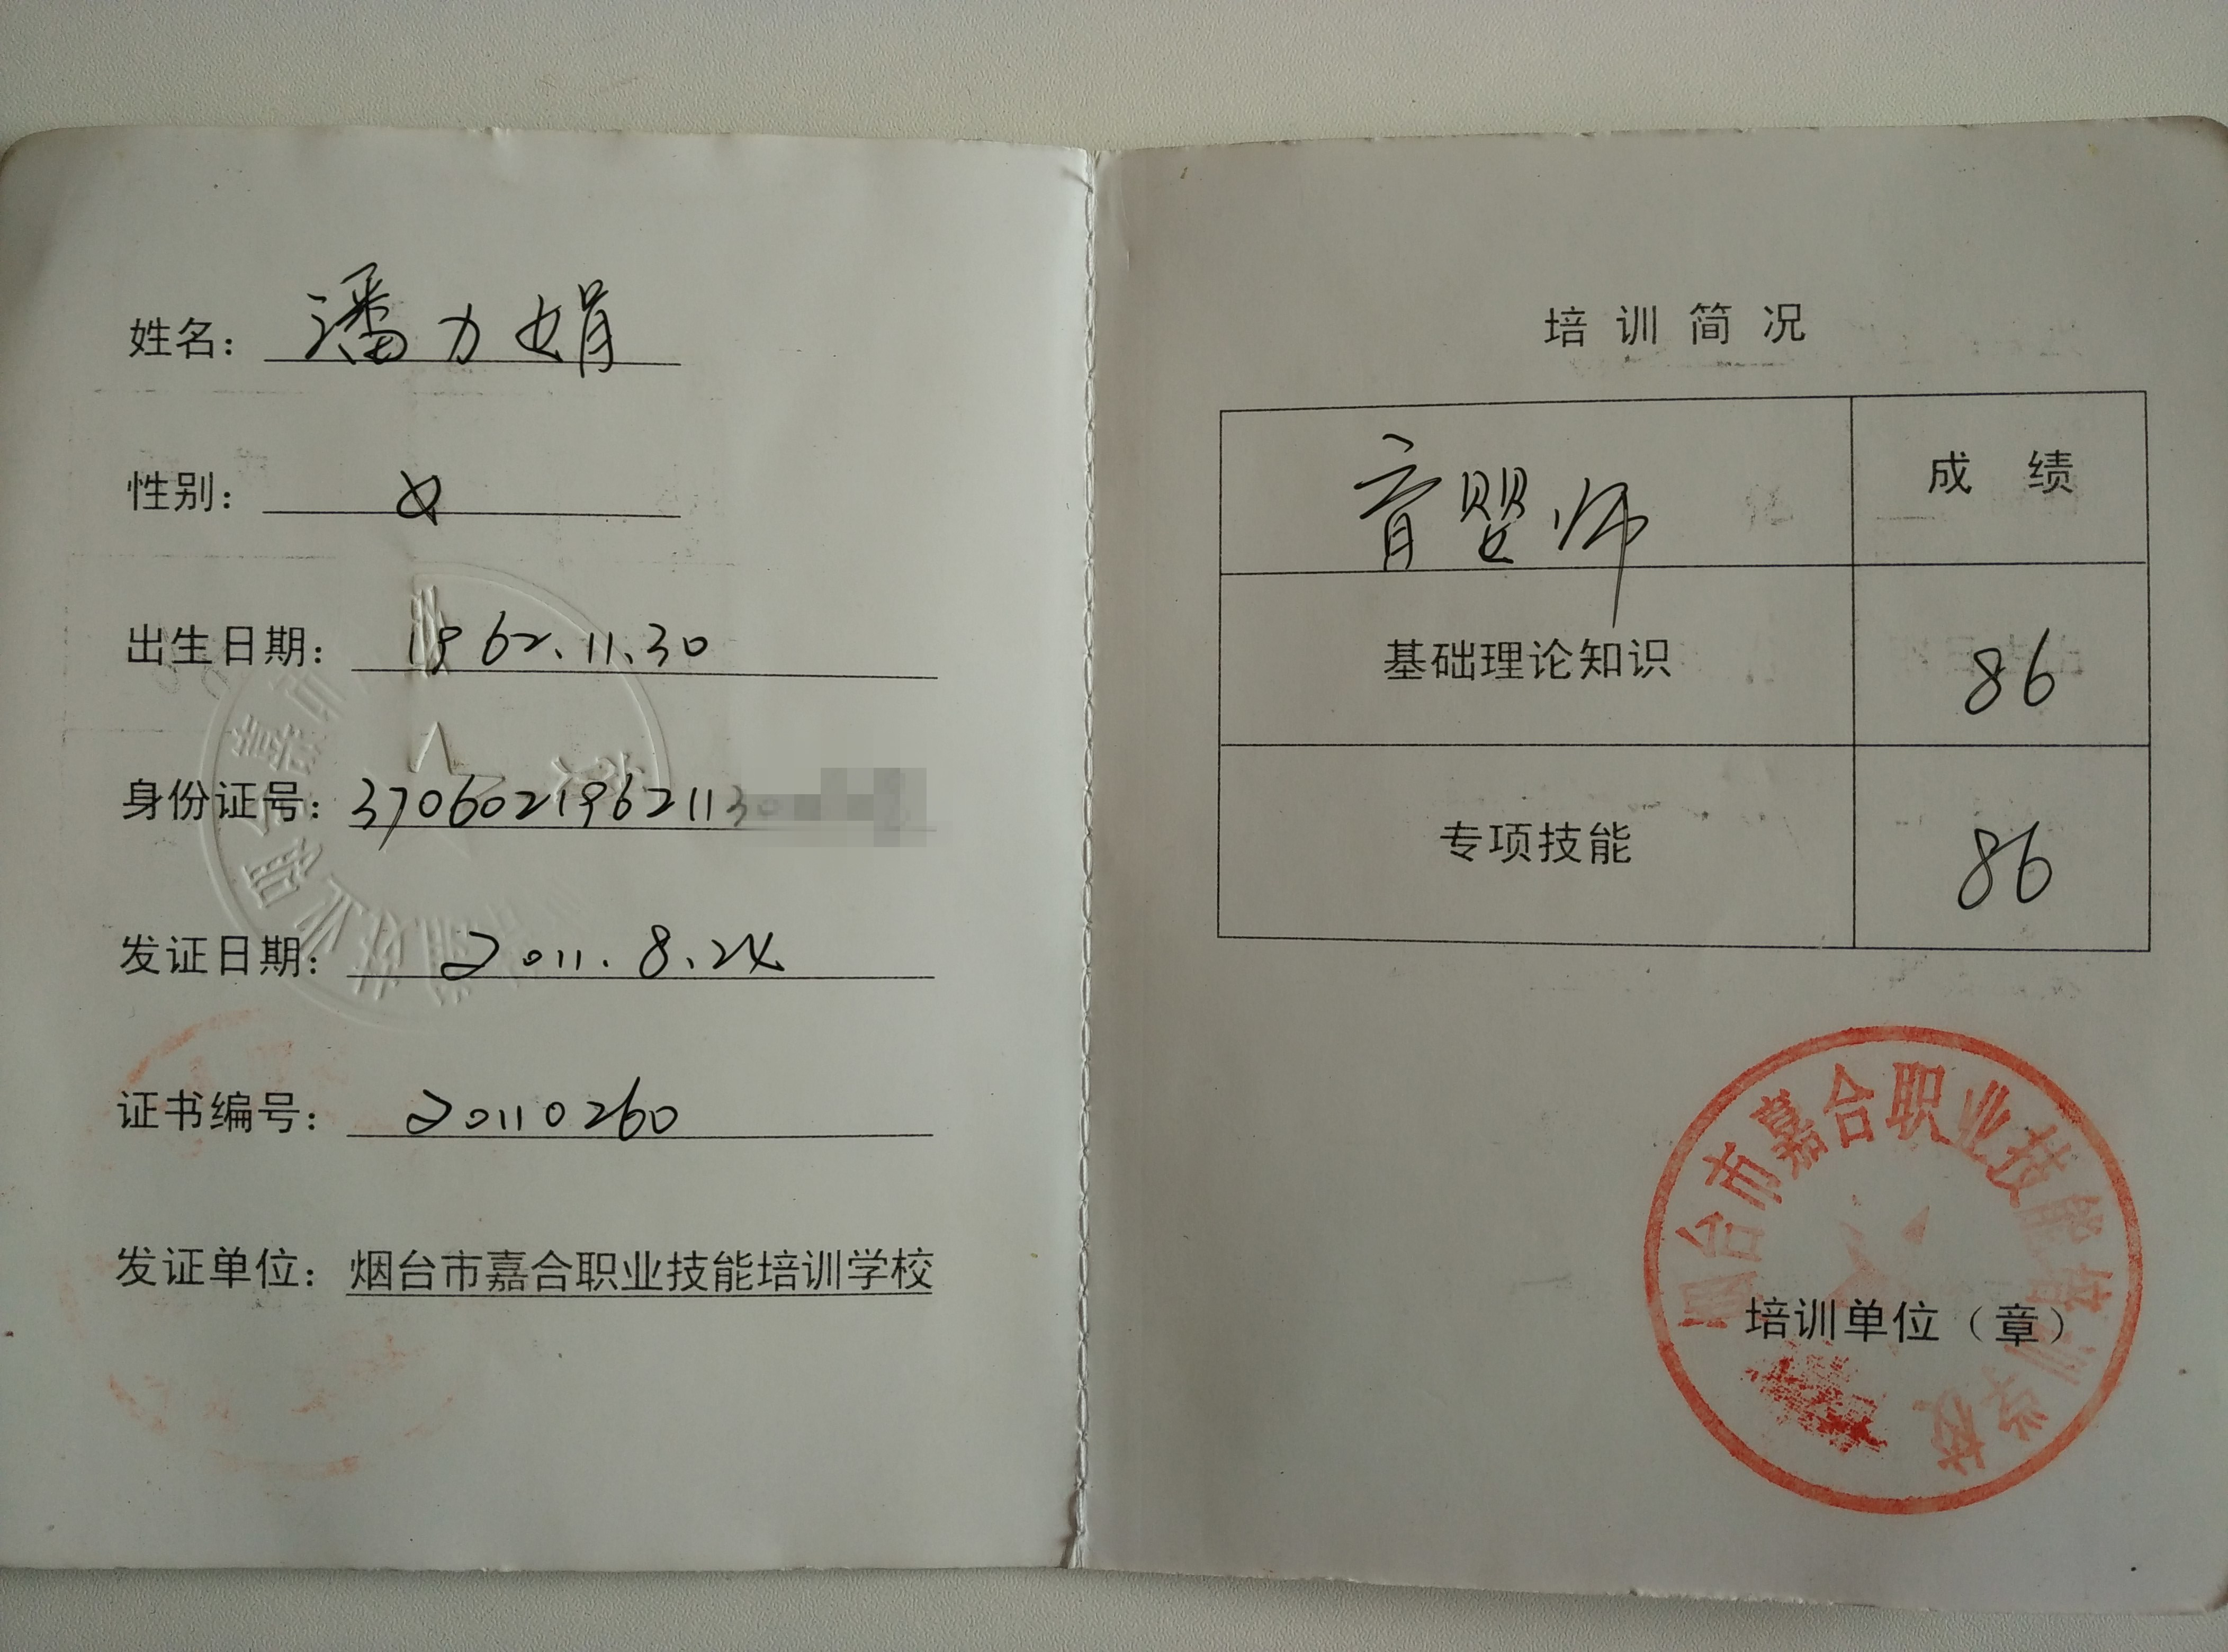 姓名：潘力娟
性别：女
出生日期：1962.11.30
身份证号：37060219621130
发证日期：2011.8.24
证书编号：20110260
发证单位：烟台市嘉合职业技能培训学校
培训简况
育婴师 成绩
基础理论知识 86
专项技能 86
烟台市嘉合职业技能培训学校
培训单位（章）